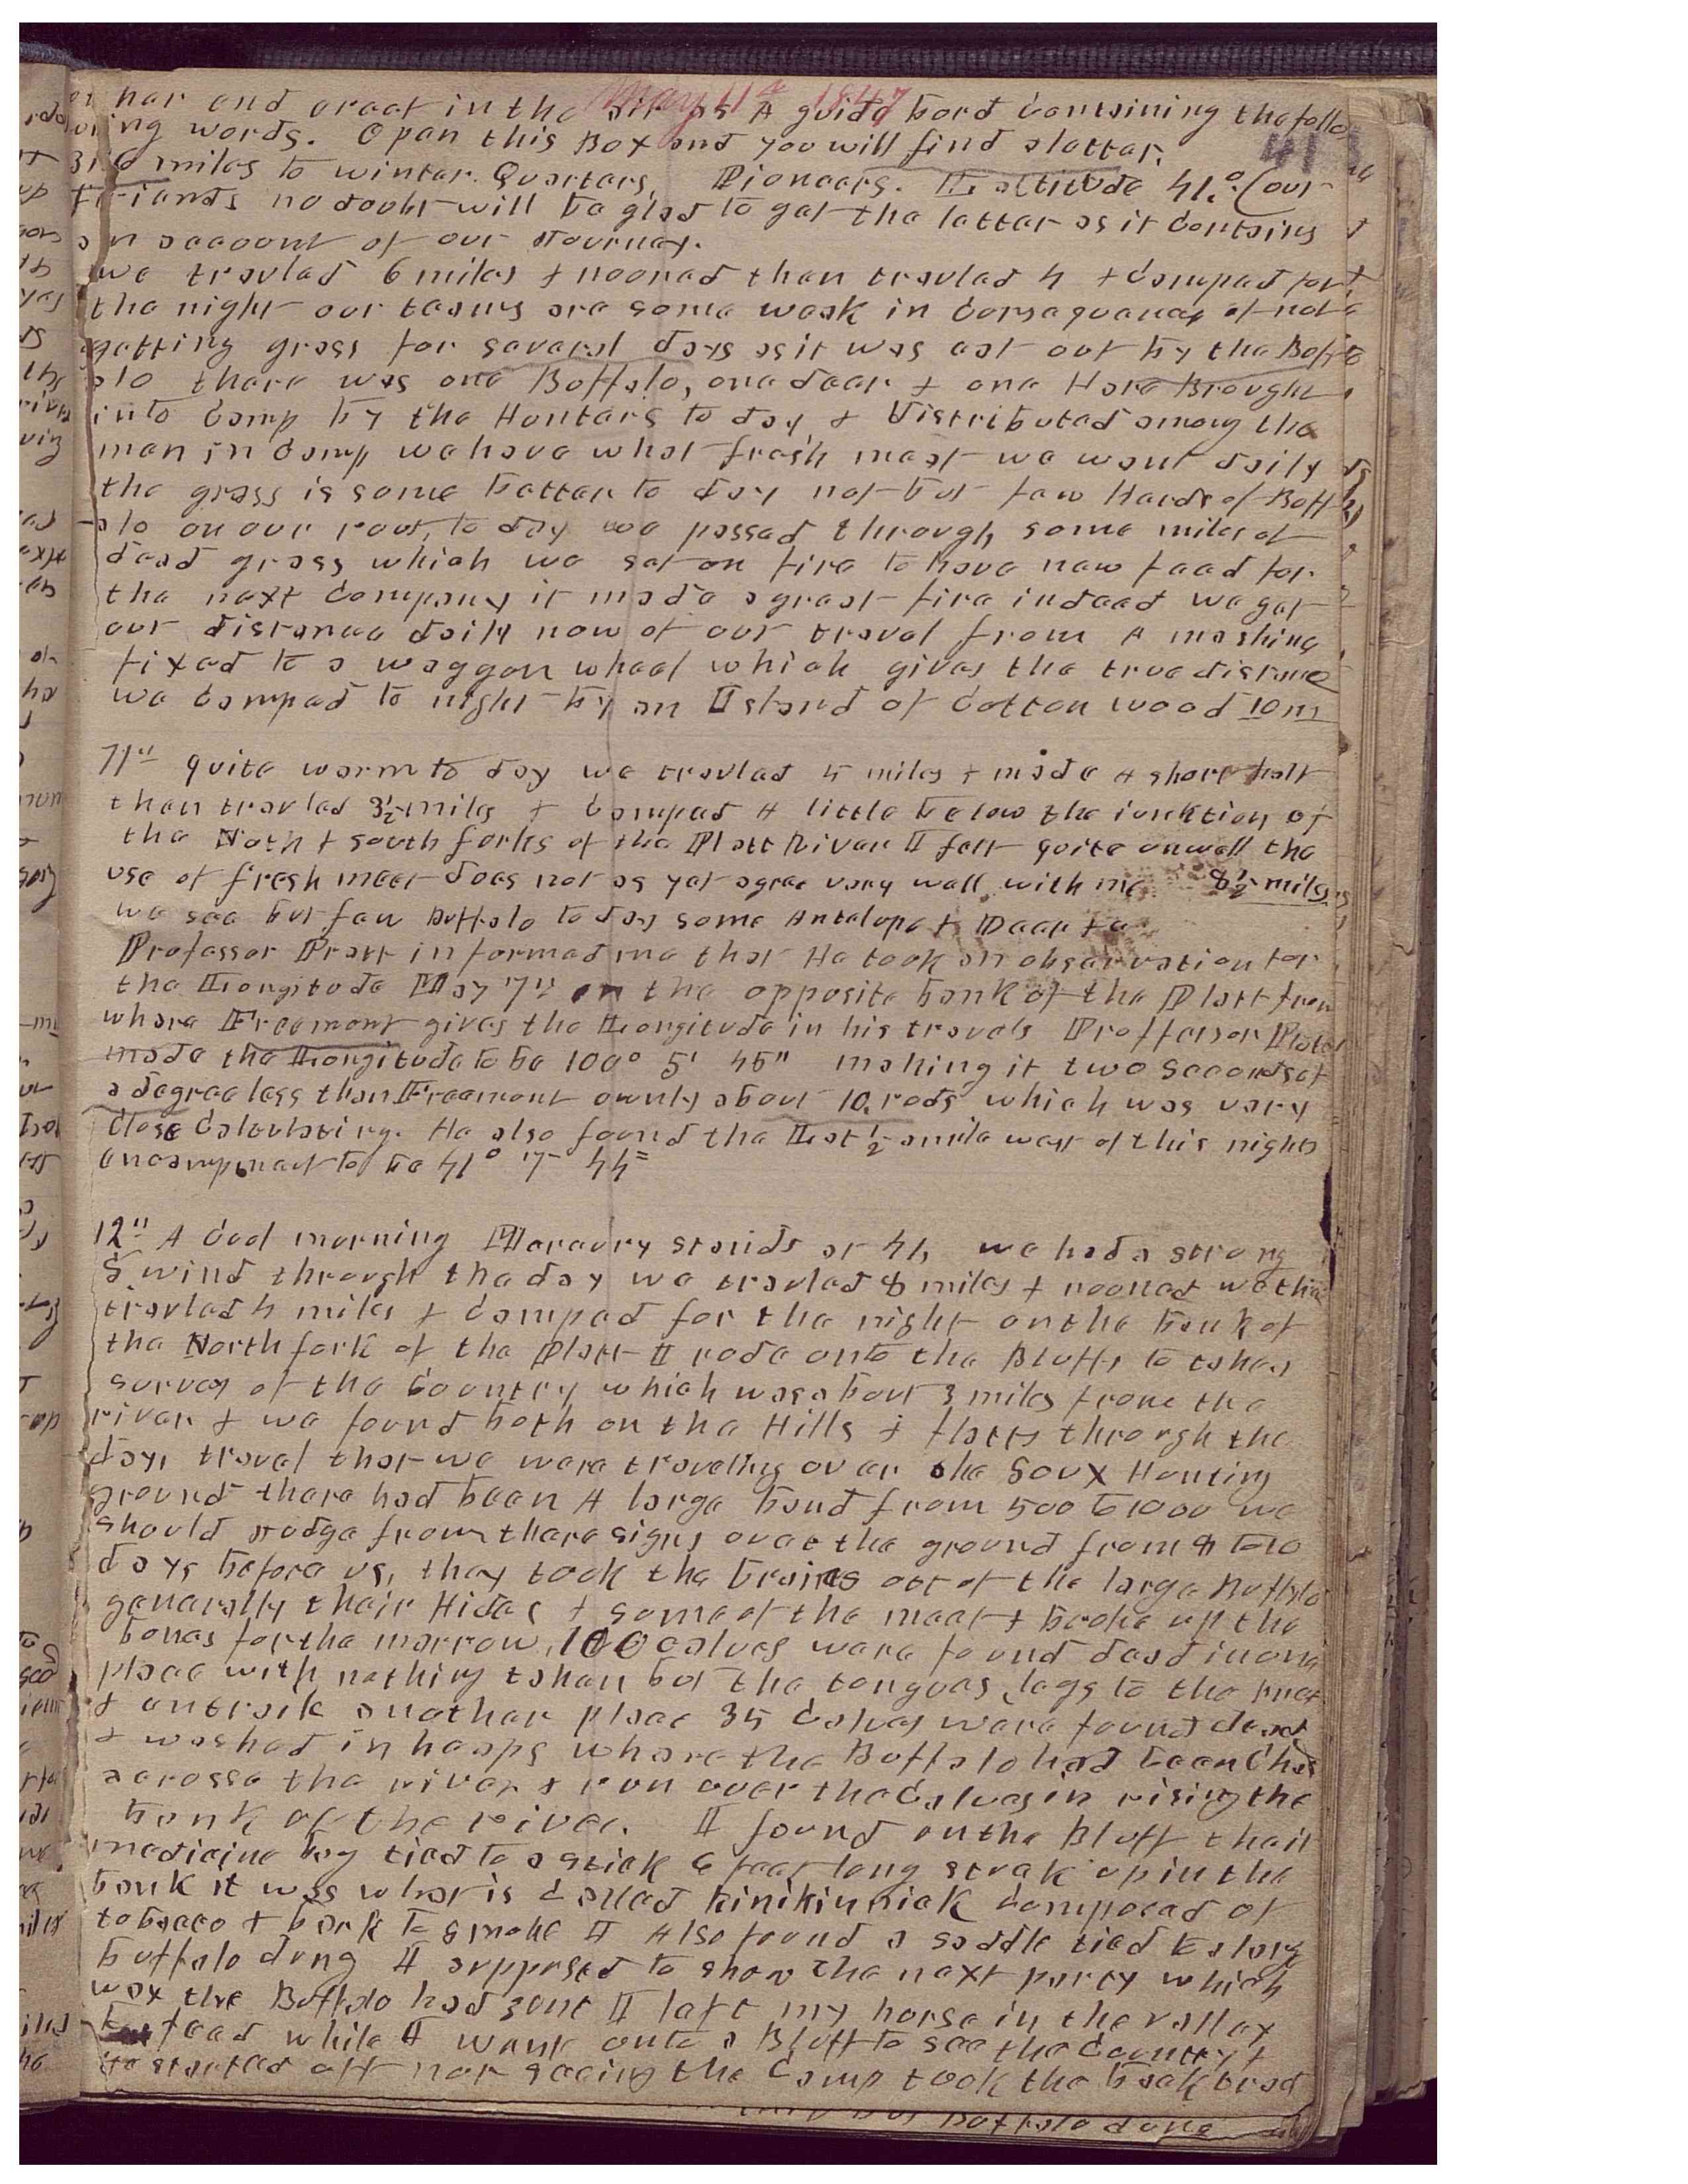 May 11th 1847
her and erect in the air as A guide bord containing the follo
wing words. Open this Box and you will find a letter.
316 miles to winter Quarters, Pioneers. Lattitude 41.° (our
friends no doubt will be glad to get the letter as it contains
an account of our Journey.
we travled 6 miles & nooned then travled 4 & camped for
the night our teams are some weak in consequence of not
getting grass for several days as it was eat out by the Buff
alo there was one Buffalo, one deer & one Hare Brought
into camp by the Hunters to day, & distributed among the
men in camp we have what fresh meat we want daily
the grass is some better to day not but few Herds of Buff
alo on our rout, to day we passed through some miles of
dead grass which we set on fire to have new feed for
the next company it made a great fire indeed we get
our distance daily now of our travel from A mashine
fixed to a waggon wheel which gives the true distance
we camped to night by an Island of Cotton wood 10 m
11th quite warm to day we travled 5 miles & made A short halt
then travled 3½ miles & camped A little below the junktion of
the North & south forks of the Platt River I felt quite unwell the
use of fresh meet does not as yet agree very well with me 8½ miles
we see but few Buffalo to day some Antelope & Deer &c
Professor Pratt informed me that He took an observation for
the Longitude May 7th on the opposite bank of the Platt from
where Freemont gives the Longitude in his travels Proffessor Pratt
made the Longitude to be 100° 5' 45" making it two Seconds of
a degree less than Freemont ownly about 10 rods which was very
close calculating. He also found the Lat ½ a mile west of this nights
encampment to be 41° 7' 44"
12th A cool morning Mercury stands at 44 we had a strong
S wind through the day we travled 8 miles & nooned we then
travled 4 miles & camped for the night on the bank of
the North fork of the Platt I rode onto the Bluffs to take a
survey of the country which was about 3 miles from the
river & we found both on the Hills & flatts through the
days travel that we were traveling over the Soux Hunting
ground there had been A large band from 500 to 1000 we
should judge from there signs over the ground from 8 to 10
days before us, they took the brains out of the large Buffalo
generally their Hides & some of the meat & broke up the
bones for the marrow, 100 calves were found dead in one
place with nothing taken but the tongues, legs to the knee
& entrails another place 35 calves were found dead
& washed in heaps where the Buffalo had been chas
acrosse the river & run over the calves in rising the
bank of the river. I found on the Bluff their
medicine bag tied to a stick 6 feet long struk up in the
bank it was what is called kinikinnick composed of
tobacco & bark to smoke I also found a saddle tied to a large
buffalo dung I supposed to show the next party which
way the Buffalo had gone I left my horse in the valley
to feed while I went onto a Bluff to see the country &
He started off not seeing the camp took the back trad